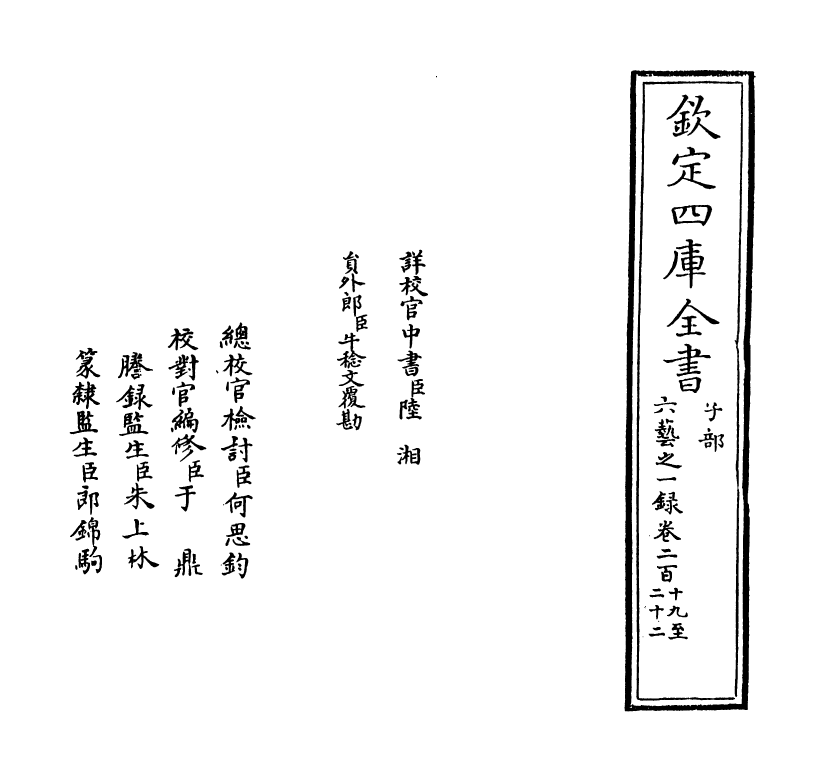 欽定四庫全書
子部
六藝之一録卷二百
十九至
二十二
詳校官中書臣陸湘
員外郎臣牛稔文覆勘
總校官檢討臣何思鈞
校對官編修臣于鼎
謄録監生臣朱上林
篆隸監生臣郎錦騊